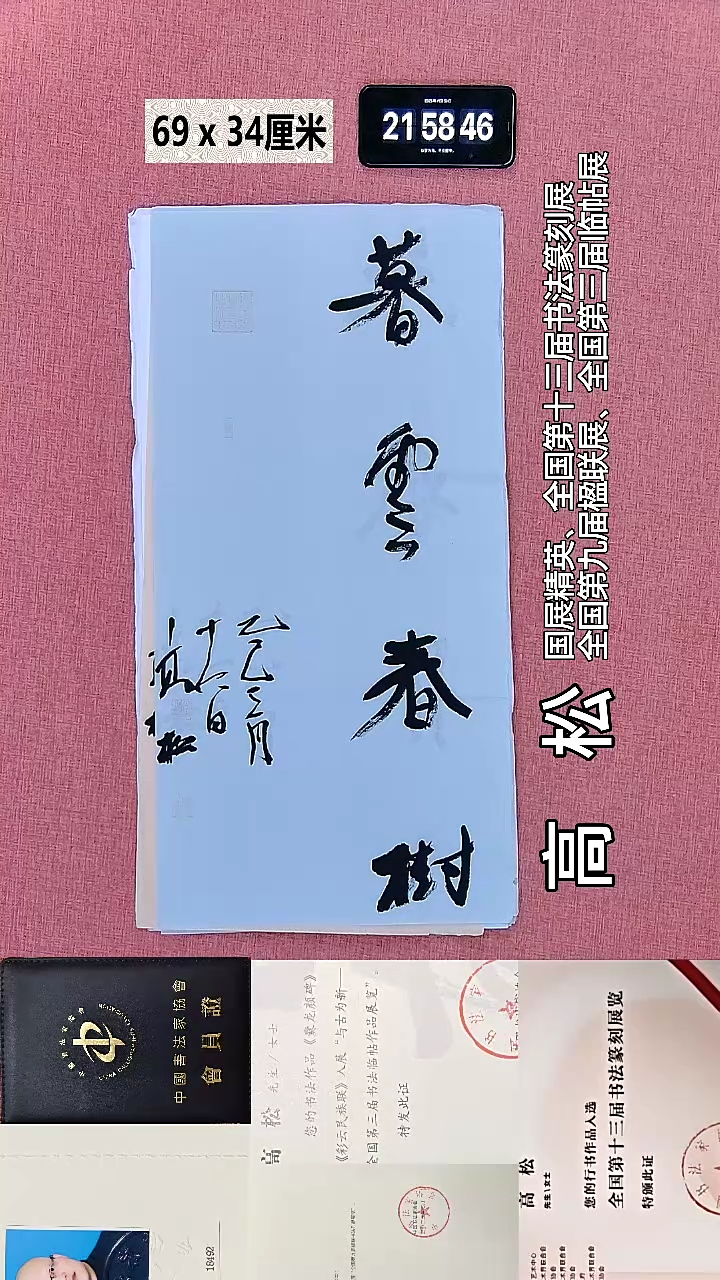 69 x 34厘米
21 58 46
暮雲春樹
乙巳三月
十六日
高松
国展精英、全国第十三届书法篆刻展
全国第九届楹联展、全国第三届临帖展
高 松
中國書法家協會
會員證
高 松 先生/女士
您的书法作品《爨龙颜碑》
《彩云民族联》入展“与古为新——
全国第三届书法临帖作品展览”。
特发此证
18492
高 松
先生\女士
您的行书作品入选
全国第十三届书法篆刻展览
特颁此证